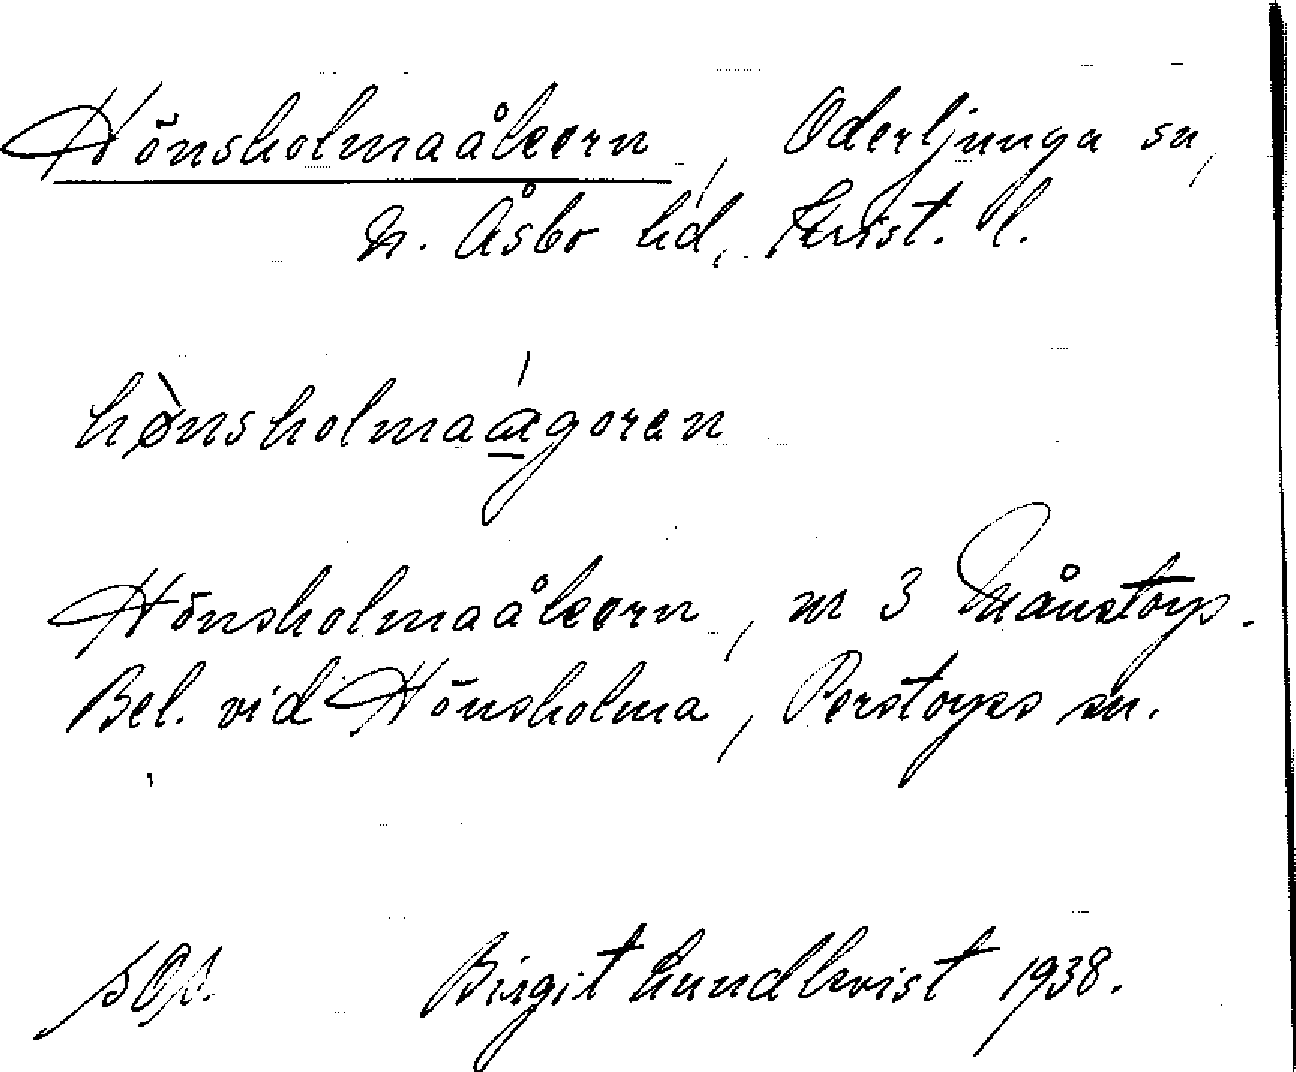 Hönsholmaåkern, Oderljunga sn,
N. Åsbo hd, Krist. l.
hø̀nsholmaá̱goren
Hönsholmaåkern, nr 3 Månstorp.
Bel. vid Hönsholma, Perstorps sn.
Birgit Lundkvist 1938.